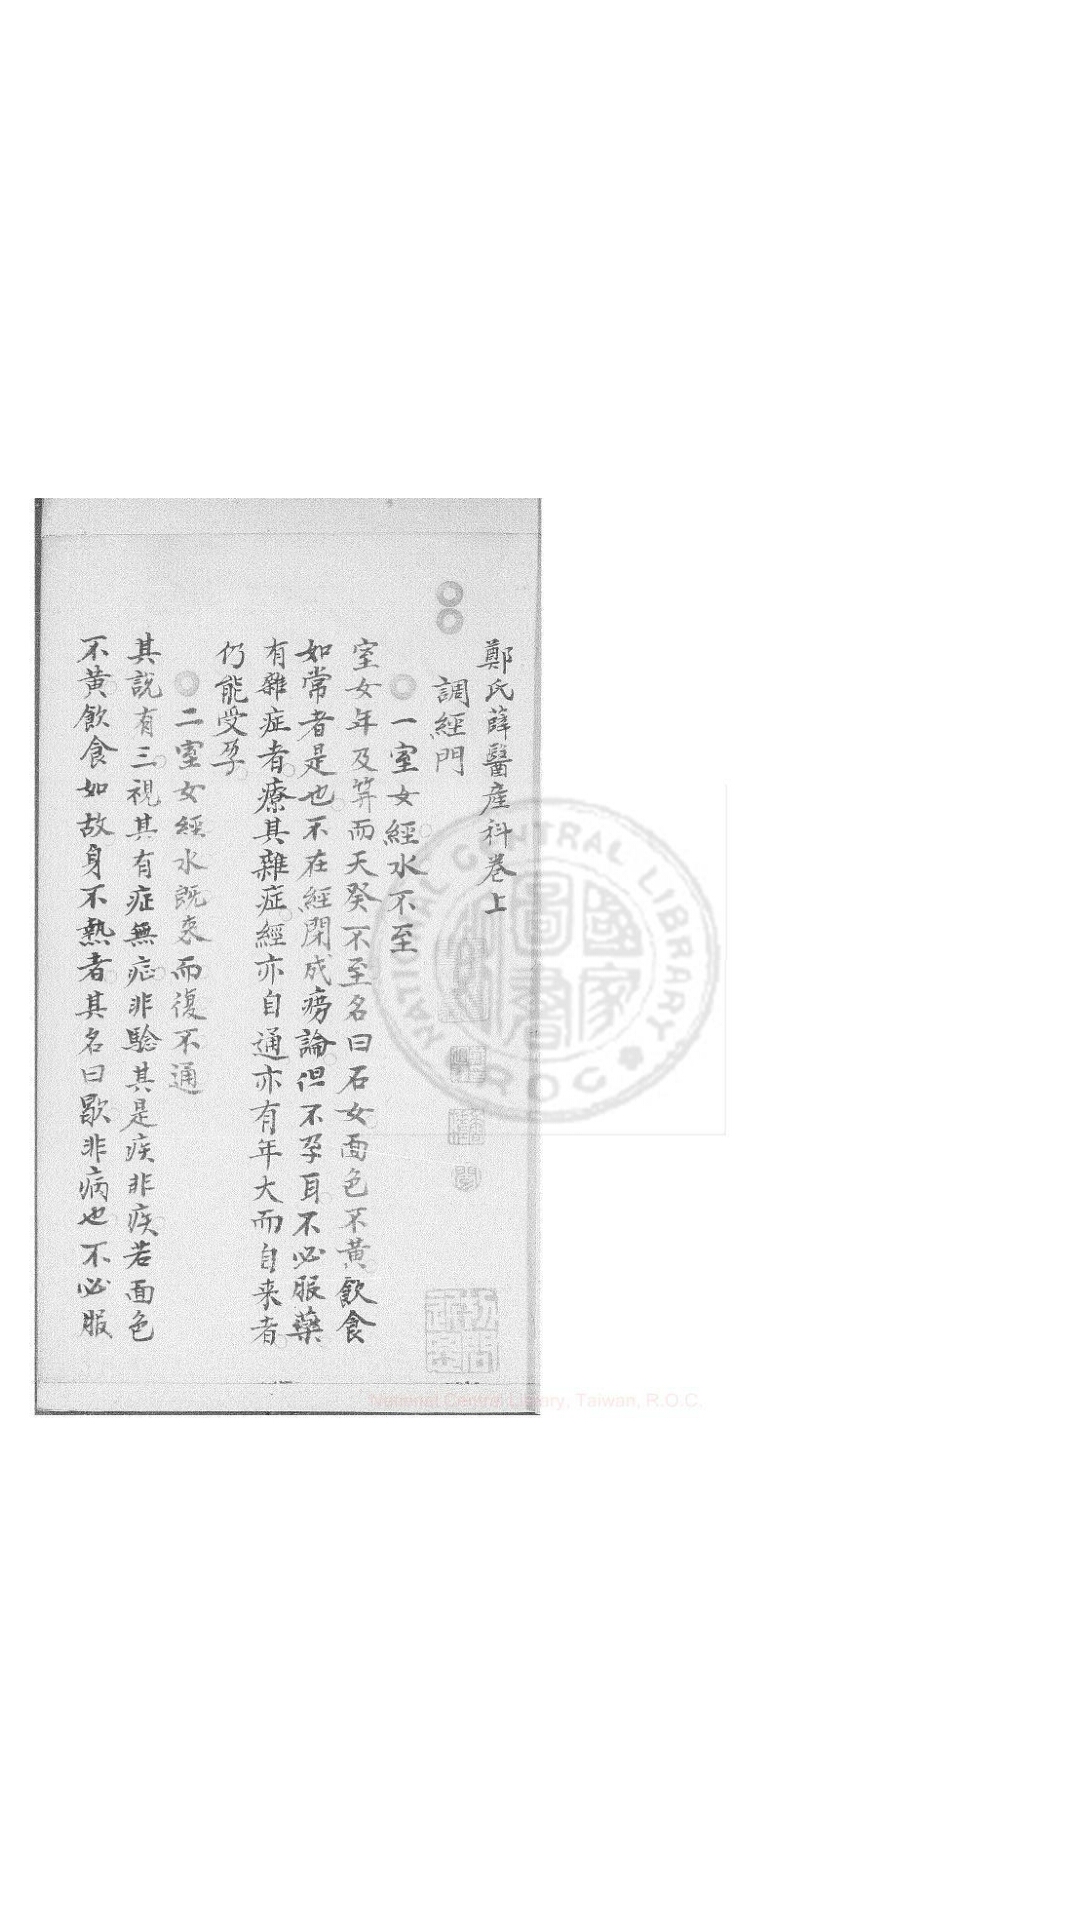 鄭氏薛醫産科卷上
調經門
一室女經水不至
室女年及笄而天癸不至名曰石女面色不黃飲食
如常者是也不在經閉成癆論但不孕耳不必服藥
有雜症者療其雜症經亦自通亦有年大而自来者
仍能受孕
二室女經水既來而復不通
其説有三視其有症無症非驗其是疾非疾若面色
不黄飲食如故身不熱者其名曰歇非病也不必服
NATIONAL CENTRAL LIBRARY
R.O.C
國家圖書
National Central Library, Taiwan, R.O.C.